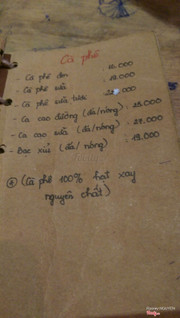 Cà phê
- Cà phê đen 16.000
- Cà phê sữa 18.000
- Cà phê sữa tươi .000
- Ca cao đường (đá/nóng) : 25.000
- Ca cao sữa (đá/nóng) : 27.000
- Bạc xỉu (đá/nóng) : 19.000
(Cà phê 100% hạt xay
nguyên chất)